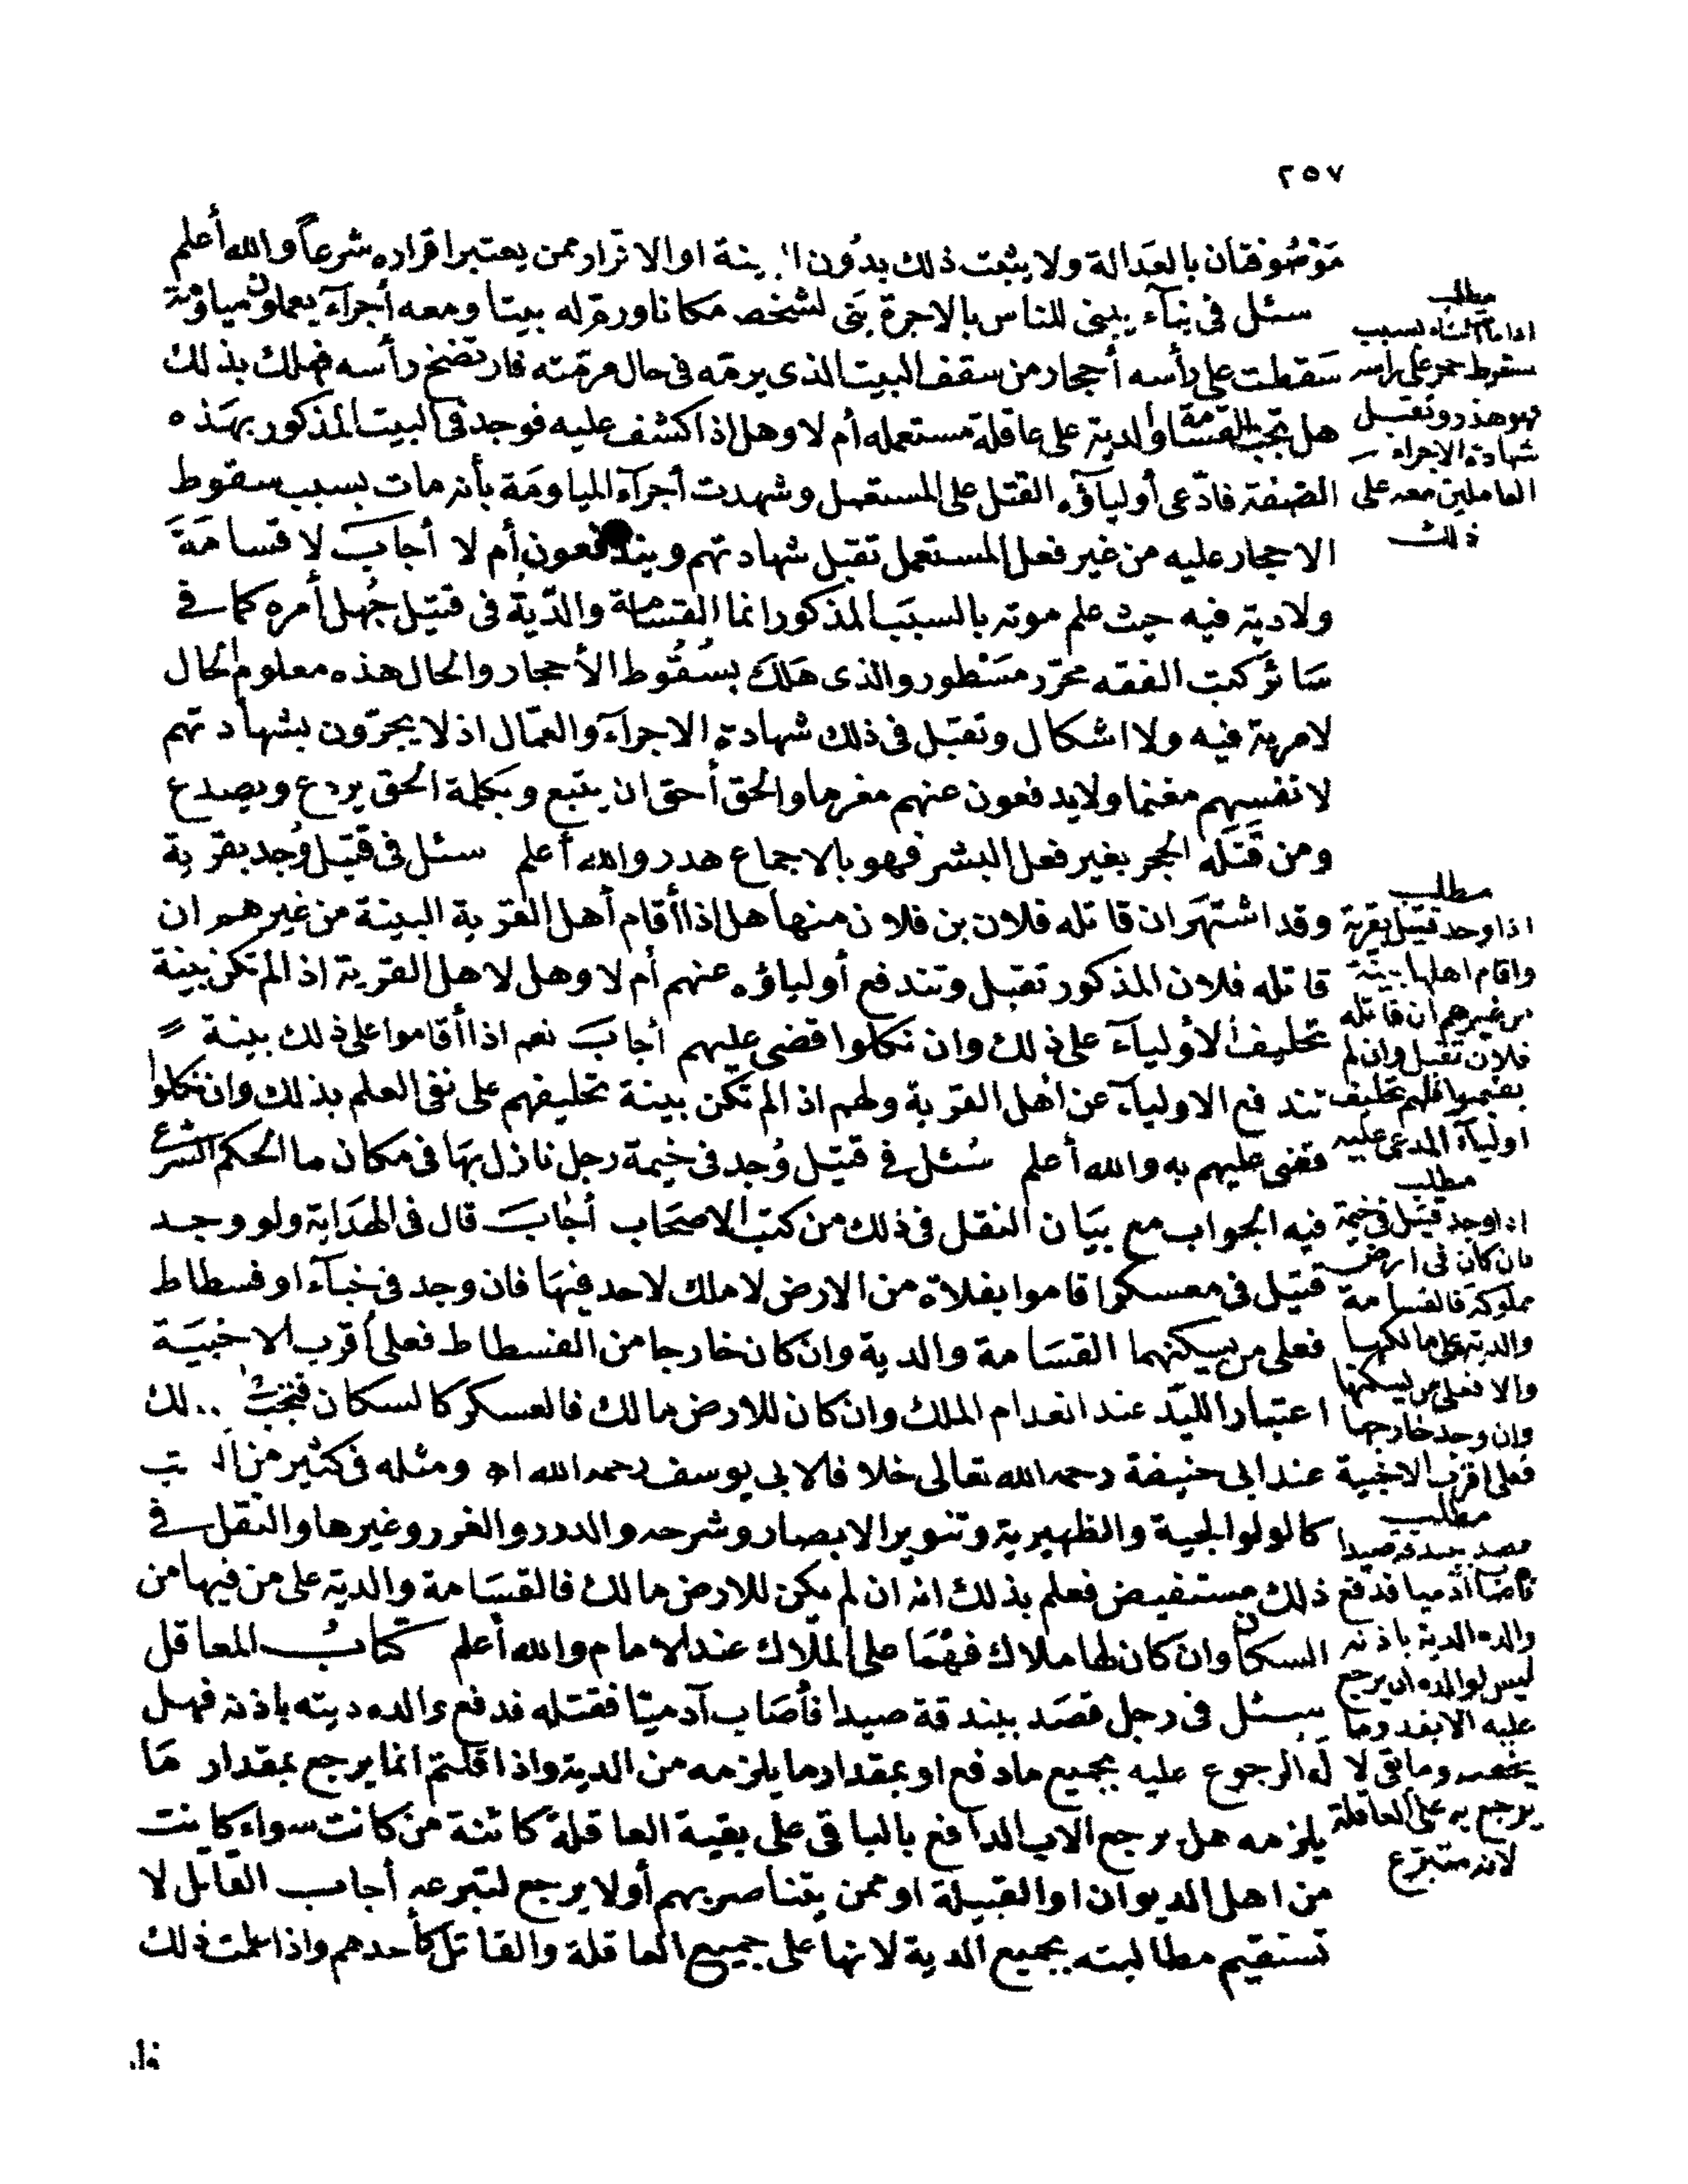 ٢٥٧
موصوفان بالعدالة ولا يثبت ذلك بدون البينة او الاقرار ممن يعتبر اقراره شرعاً والله أعلم
سئل فى بنآء يبنى للناس بالاجرة بنى لشخص مكانا ورم له بيتا ومعه أجرآء يعملون مياومة
سقطت على رأسه أحجار من سقف البيت الذى يرمه فى حال مرمته فارتضخ رأسه فهلك بذلك
هل تجب القسامة او الدية على عاقلة مستعمله أم لا وهل اذا كشف عليه فوجد فى البيت المذكور بهذه
الصفة فادّعى أوليآؤه القتل على المستعمل وشهدت أجرآء المياومة بأنه مات بسبب سقوط
الاحجار عليه من غير فعل المستعمل تقبل شهادتهم ويندفعون أم لا أجاب لا قسامة
ولا دية فيه حيث علم موته بالسبب المذكور انما القسامة والدّية فى قتيل جُهل أمره كما فى
سائر كتب الفقه محرّر مسطور والذى هلك بسُقُوط الأحجار والحال هذه معلوم الحال
لا مرية فيه ولا اشكال وتقبل فى ذلك شهادة الاجرآء والعمّال اذ لا يجرّون بشهادتهم
لانفسهم مغنما ولا يدفعون عنهم مغرما والحق أحق ان يتبع وبكلمة الحق يردع ويصدع
ومن قتله الحجر بغير فعل البشر فهو بالاجماع هدر والله أعلم سئل فى قتيل وُجد بقرية
وقد اشتهر ان قاتله فلان بن فلان منها هل اذا أقام أهل القرية البينة من غيرهم ان
قاتله فلان المذكور تقبل وتندفع أولياؤه عنهم أم لا وهل لاهل القرية اذا لم تكن بينة
تحليف الأوليآء على ذلك وان نكلوا قضى عليهم أجاب نعم اذا أقاموا على ذلك بينة
تندفع الاوليآء عن اهل القرية ولهم اذا لم تكن بينة تحليفهم على نفى العلم بذلك وان نكلوا
قضى عليهم به والله أعلم سُئل فى قتيل وُجد فى خيمة رجل نازل بها فى مكان ما الحكم الشرعى
فيه الجواب مع بيان النقل فى ذلك من كتب الاصحاب أجاب قال فى الهداية ولو وجد
قتيل فى معسكر اقاموا بفلاة من الارض لا ملك لاحد فيها فان وجد فى خبآء او فسطاط
فعلى من يسكنهما القسامة والدية وان كان خارجا من الفسطاط فعلى أقرب الاخبية
اعتبارا لليد عند انعدام الملك وان كان للارض مالك فالعسكر كالسكان فتجب على المالك
عند ابى حنيفة رحمه الله تعالى خلافا لابى يوسف رحمه الله اه ومثله فى كثير من الكتب
كالولوالجية والظهيرية وتنوير الابصار وشرحه والدرر والغرر وغيرها والنقل فى
ذلك مستفيض فعلم بذلك انه ان لم يكن للارض مالك فالقسامة والدية على من فيها من
السكان وان كان لها ملاك فهما على الملاك عند الامام والله أعلم كتاب المعاقل
سئل فى رجل قصد ببندقة صيدا فأصاب آدميّا فقتله فدفع والده ديته باذنه فهل
له الرجوع عليه بجميع ما دفع او بمقدار ما يلزمه من الدية واذا قلتم انما يرجع بمقدار ما
يلزمه هل يرجع الاب الدافع بالباقى على بقية العاقلة كائنة من كانت سواء كانت
من اهل الديوان او القبيلة او ممن يتناصر بهم أو لا يرجع لتبرعه أجاب القاتل لا
تستقيم مطالبته بجميع الدية لانها على جميع العاقلة والقاتل كأحدهم واذا علمت ذلك
مطلب
اذا مات البناء بسبب
سقوط حجر على راسه
فهو هدر وتقبل
شهادة الاجراء
العاملين معه على
ذلك
مطلب
اذا وجد قتيل بقرية
واقام اهلها بينة
من غيرهم ان قاتله
فلان تقبل وان لم
يقيموا فلهم تحليف
اوليآء المدعى عليه
مطلب
اذا وجد قتيل فى خيمة
فان كان فى ارض
مملوكة فالقسامة
والدية على مالكها
والا فعلى من يسكنها
وان وجد خارجها
فعلى اقرب الاخبية
مطلب
قصد ببندقة صيدا
فأصاب آدميا فدفع
والده الدية باذنه
ليس لوالده ان يرجع
عليه الا بقدر ما
يخصه وما بقى لا
يرجع به على العاقلة
لانه متبرّع